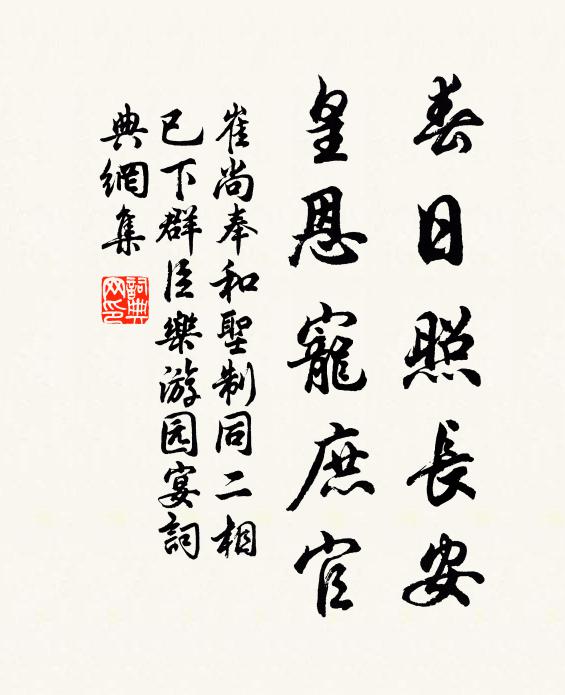 春日照長安
皇恩寵庶官
崔尚奉和聖制同二相
已下群臣樂游园宴詞
典網集
詞典
网印